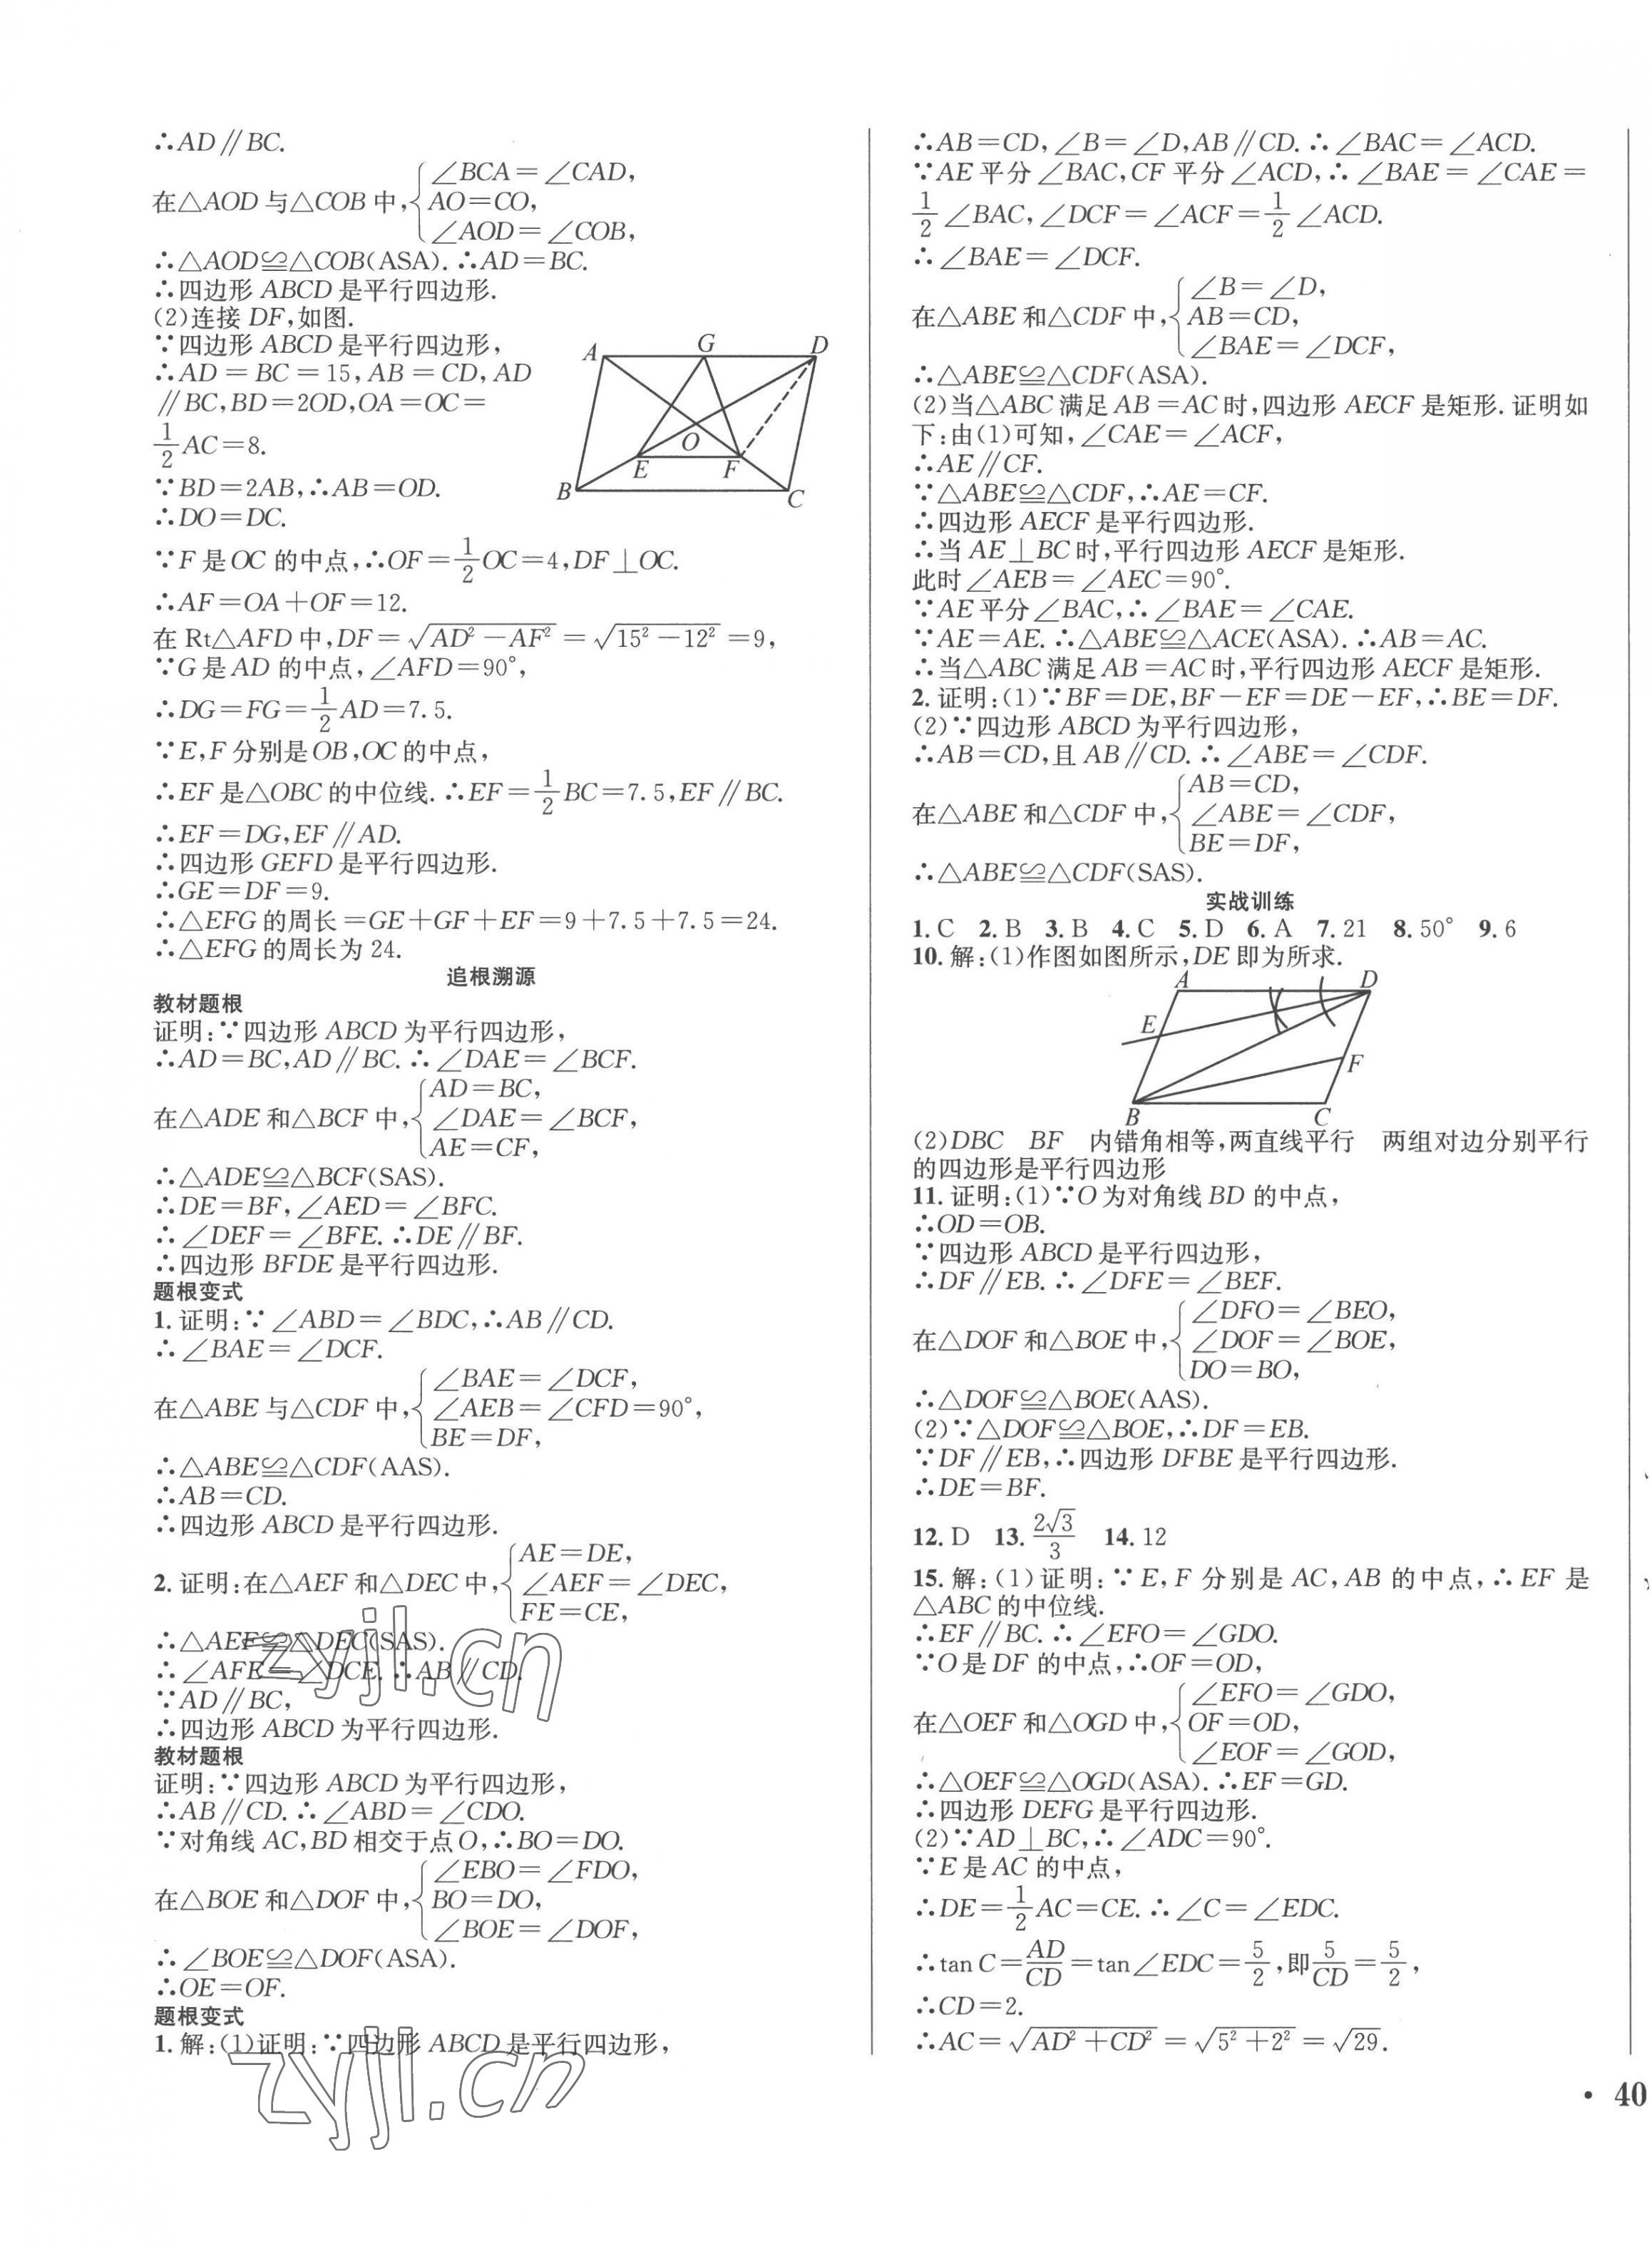 ∴AD∥BC.
在△AOD与△COB中,{∠BCA=∠CAD,
AO=CO,
∠AOD=∠COB,
∴△AOD≌△COB(ASA).∴AD=BC.
∴四边形ABCD是平行四边形.
(2)连接DF,如图.
∵四边形ABCD是平行四边形,
∴AD=BC=15,AB=CD,AD
∥BC,BD=2OD,OA=OC=
1/2 AC=8.
∵BD=2AB,∴AB=OD.
∴DO=DC.
A G D
O
E F
B C
∵F是OC的中点,∴OF=1/2 OC=4,DF⊥OC.
∴AF=OA+OF=12.
在Rt△AFD中,DF=√(AD²-AF²)=√(15²-12²)=9,
∵G是AD的中点,∠AFD=90°,
∴DG=FG=1/2 AD=7.5.
∵E,F分别是OB,OC的中点,
∴EF是△OBC的中位线.∴EF=1/2 BC=7.5,EF∥BC.
∴EF=DG,EF∥AD.
∴四边形GEFD是平行四边形.
∴GE=DF=9.
∴△EFG的周长=GE+GF+EF=9+7.5+7.5=24.
∴△EFG的周长为24.
追根溯源
教材题根
证明:∵四边形ABCD为平行四边形,
∴AD=BC,AD∥BC.∴∠DAE=∠BCF.
在△ADE和△BCF中,{AD=BC,
∠DAE=∠BCF,
AE=CF,
∴△ADE≌△BCF(SAS).
∴DE=BF,∠AED=∠BFC.
∴∠DEF=∠BFE.∴DE∥BF.
∴四边形BFDE是平行四边形.
题根变式
1.证明:∵∠ABD=∠BDC,∴AB∥CD.
∴∠BAE=∠DCF.
在△ABE与△CDF中,{∠BAE=∠DCF,
∠AEB=∠CFD=90°,
BE=DF,
∴△ABE≌△CDF(AAS).
∴AB=CD.
∴四边形ABCD是平行四边形.
2.证明:在△AEF和△DEC中,{AE=DE,
∠AEF=∠DEC,
FE=CE,
∴△AEF≌△DEC(SAS).
∴∠AFE=∠DCE.∴AB∥CD.
∵AD∥BC,
∴四边形ABCD为平行四边形.
zyjl.cn
教材题根
证明:∵四边形ABCD为平行四边形,
∴AB∥CD.∴∠ABD=∠CDO.
∵对角线AC,BD相交于点O,∴BO=DO.
在△BOE和△DOF中,{∠EBO=∠FDO,
BO=DO,
∠BOE=∠DOF,
∴∠BOE≌△DOF(ASA).
∴OE=OF.
题根变式
1.解:(1)证明:∵四边形ABCD是平行四边形,
zyjl.cn
∴AB=CD,∠B=∠D,AB∥CD.∴∠BAC=∠ACD.
∵AE平分∠BAC,CF平分∠ACD,∴∠BAE=∠CAE=
1/2∠BAC,∠DCF=∠ACF=1/2∠ACD.
∴∠BAE=∠DCF.
在△ABE和△CDF中,{∠B=∠D,
AB=CD,
∠BAE=∠DCF,
∴△ABE≌△CDF(ASA).
(2)当△ABC满足AB=AC时,四边形AECF是矩形.证明如
下:由(1)可知,∠CAE=∠ACF,
∴AE∥CF.
∵△ABE≌△CDF,∴AE=CF.
∴四边形AECF是平行四边形.
∴当AE⊥BC时,平行四边形AECF是矩形.
此时∠AEB=∠AEC=90°.
∵AE平分∠BAC,∴∠BAE=∠CAE.
∵AE=AE.∴△ABE≌△ACE(ASA).∴AB=AC.
∴当△ABC满足AB=AC时,平行四边形AECF是矩形.
2.证明:(1)∵BF=DE,BF-EF=DE-EF,∴BE=DF.
(2)∵四边形ABCD为平行四边形,
∴AB=CD,且AB∥CD.∴∠ABE=∠CDF.
在△ABE和△CDF中,{AB=CD,
∠ABE=∠CDF,
BE=DF,
∴△ABE≌△CDF(SAS).
实战训练
1.C 2.B 3.B 4.C 5.D 6.A 7.21 8.50° 9.6
10.解:(1)作图如图所示,DE即为所求.
A D
E
F
B C
(2)DBC BF 内错角相等,两直线平行 两组对边分别平行
的四边形是平行四边形
11.证明:(1)∵O为对角线BD的中点,
∴OD=OB.
∵四边形ABCD是平行四边形,
∴DF∥EB.∴∠DFE=∠BEF.
在△DOF和△BOE中,{∠DFO=∠BEO,
∠DOF=∠BOE,
DO=BO,
∴△DOF≌△BOE(AAS).
(2)∵△DOF≌△BOE,∴DF=EB.
∵DF∥EB,∴四边形DFBE是平行四边形.
∴DE=BF.
12.D 13.2√3/3 14.12
15.解:(1)证明:∵E,F分别是AC,AB的中点,∴EF是
△ABC的中位线.
∴EF∥BC.∴∠EFO=∠GDO.
∵O是DF的中点,∴OF=OD,
在△OEF和△OGD中,{∠EFO=∠GDO,
OF=OD,
∠EOF=∠GOD,
∴△OEF≌△OGD(ASA).∴EF=GD.
∴四边形DEFG是平行四边形.
(2)∵AD⊥BC,∴∠ADC=90°.
∵E是AC的中点,
∴DE=1/2 AC=CE.∴∠C=∠EDC.
∴tan C=AD/CD=tan∠EDC=5/2,即5/CD=5/2,
∴CD=2.
∴AC=√(AD²+CD²)=√(5²+2²)=√29.
· 40